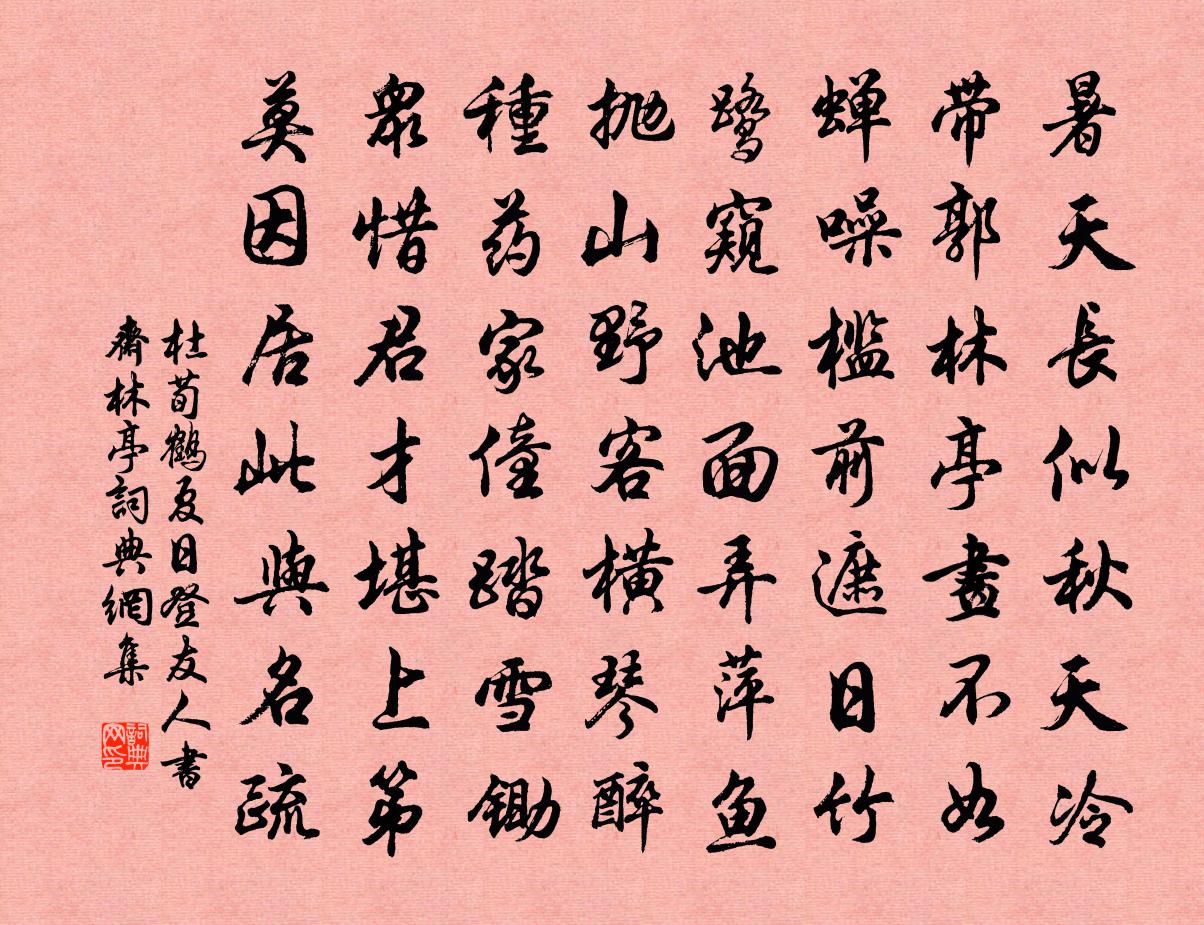 暑天長似秋天冷
帶郭林亭畫不如
蝉噪檻前遮日竹
鹭窺池面弄萍鱼
抛山野客横琴醉
種药家僮踏雪锄
眾惜君才堪上第
莫因居此與名疏
杜荀鶴夏日登友人書
齋林亭詞典網集
詞典
网印